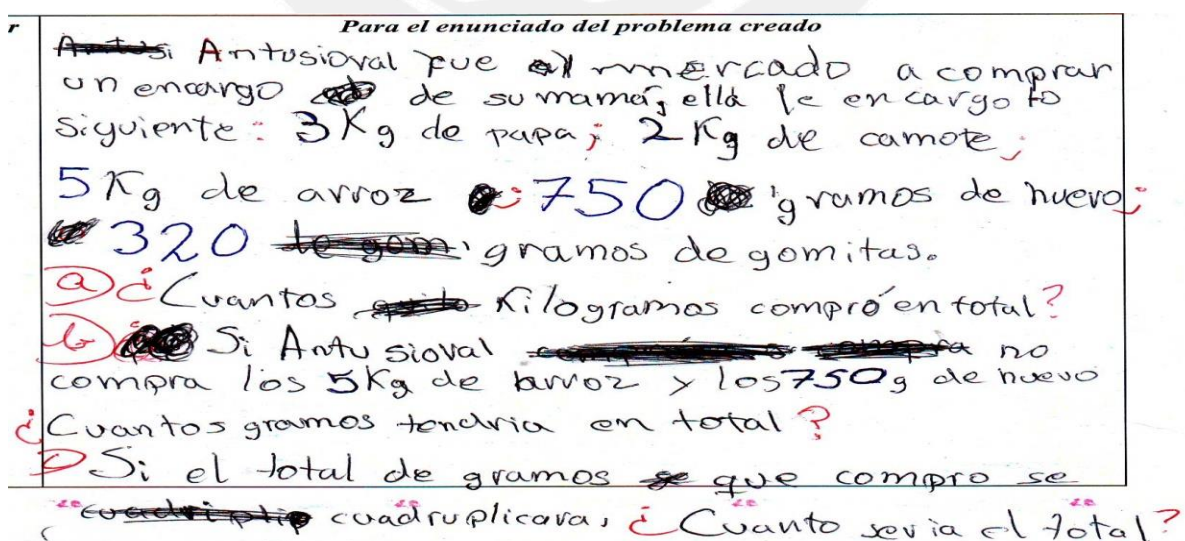 r
Para el enunciado del problema creado
Antusioval fue al mercado a comprar
un encargo de su mamá, ella le encargo lo
siguiente: 3Kg de papa; 2Kg de camote;
5Kg de arroz ; 750 gramos de huevo;
320 gramos de gomitas.
a) ¿Cuantos Kilogramos compró en total?
b) Si Antusioval no
compra los 5Kg de arroz y los 750g de huevo
¿Cuantos gramos tendria en total?
Si el total de gramos que compro se
cuadruplicara, ¿Cuanto seria el total?